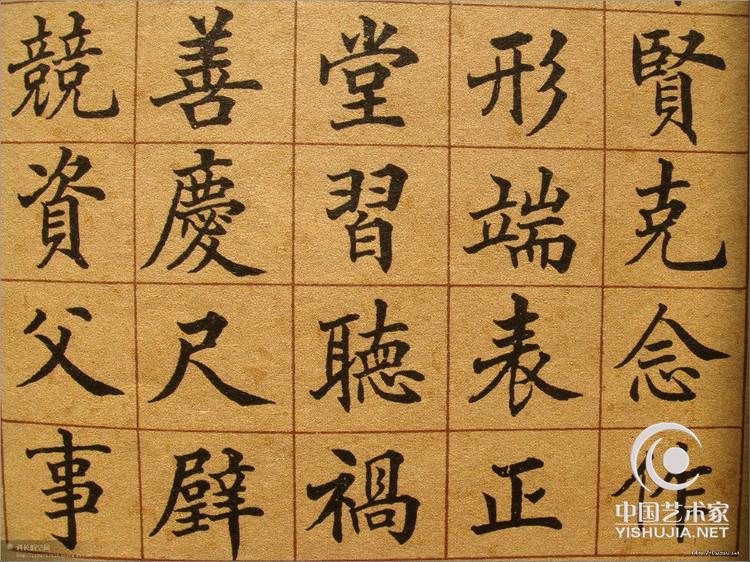 賢克念作
形端表正
堂習聽禍
善慶尺璧
競資父事
中国艺术家
YISHUJIA.NET